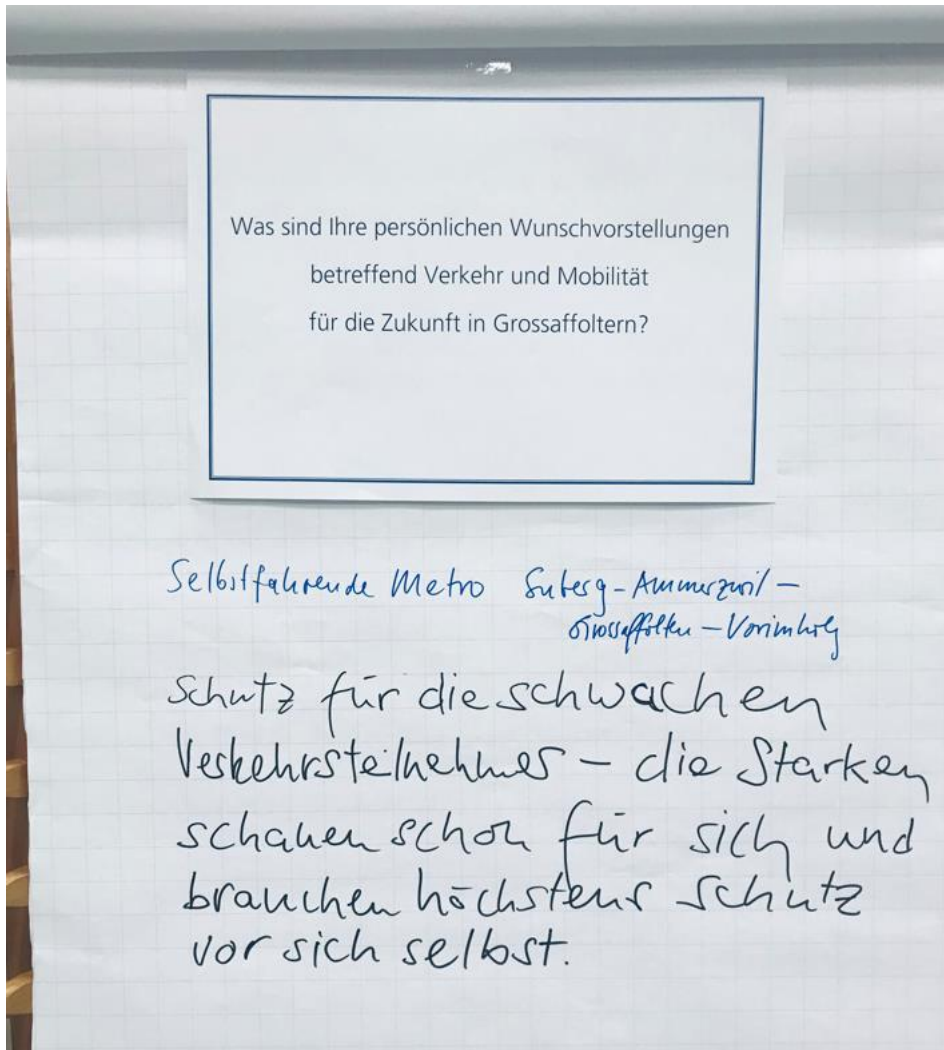 Was sind Ihre persönlichen Wunschvorstellungen
betreffend Verkehr und Mobilität
für die Zukunft in Grossaffoltern?
Selbstfahrende Metro Suberg - Ammerzwil -
Grossaffoltern - Vorimholz
Schutz für die schwachen
Verkehrsteilnehmer - die Starken
schauen schon für sich und
brauchen höchstens Schutz
vor sich selbst.